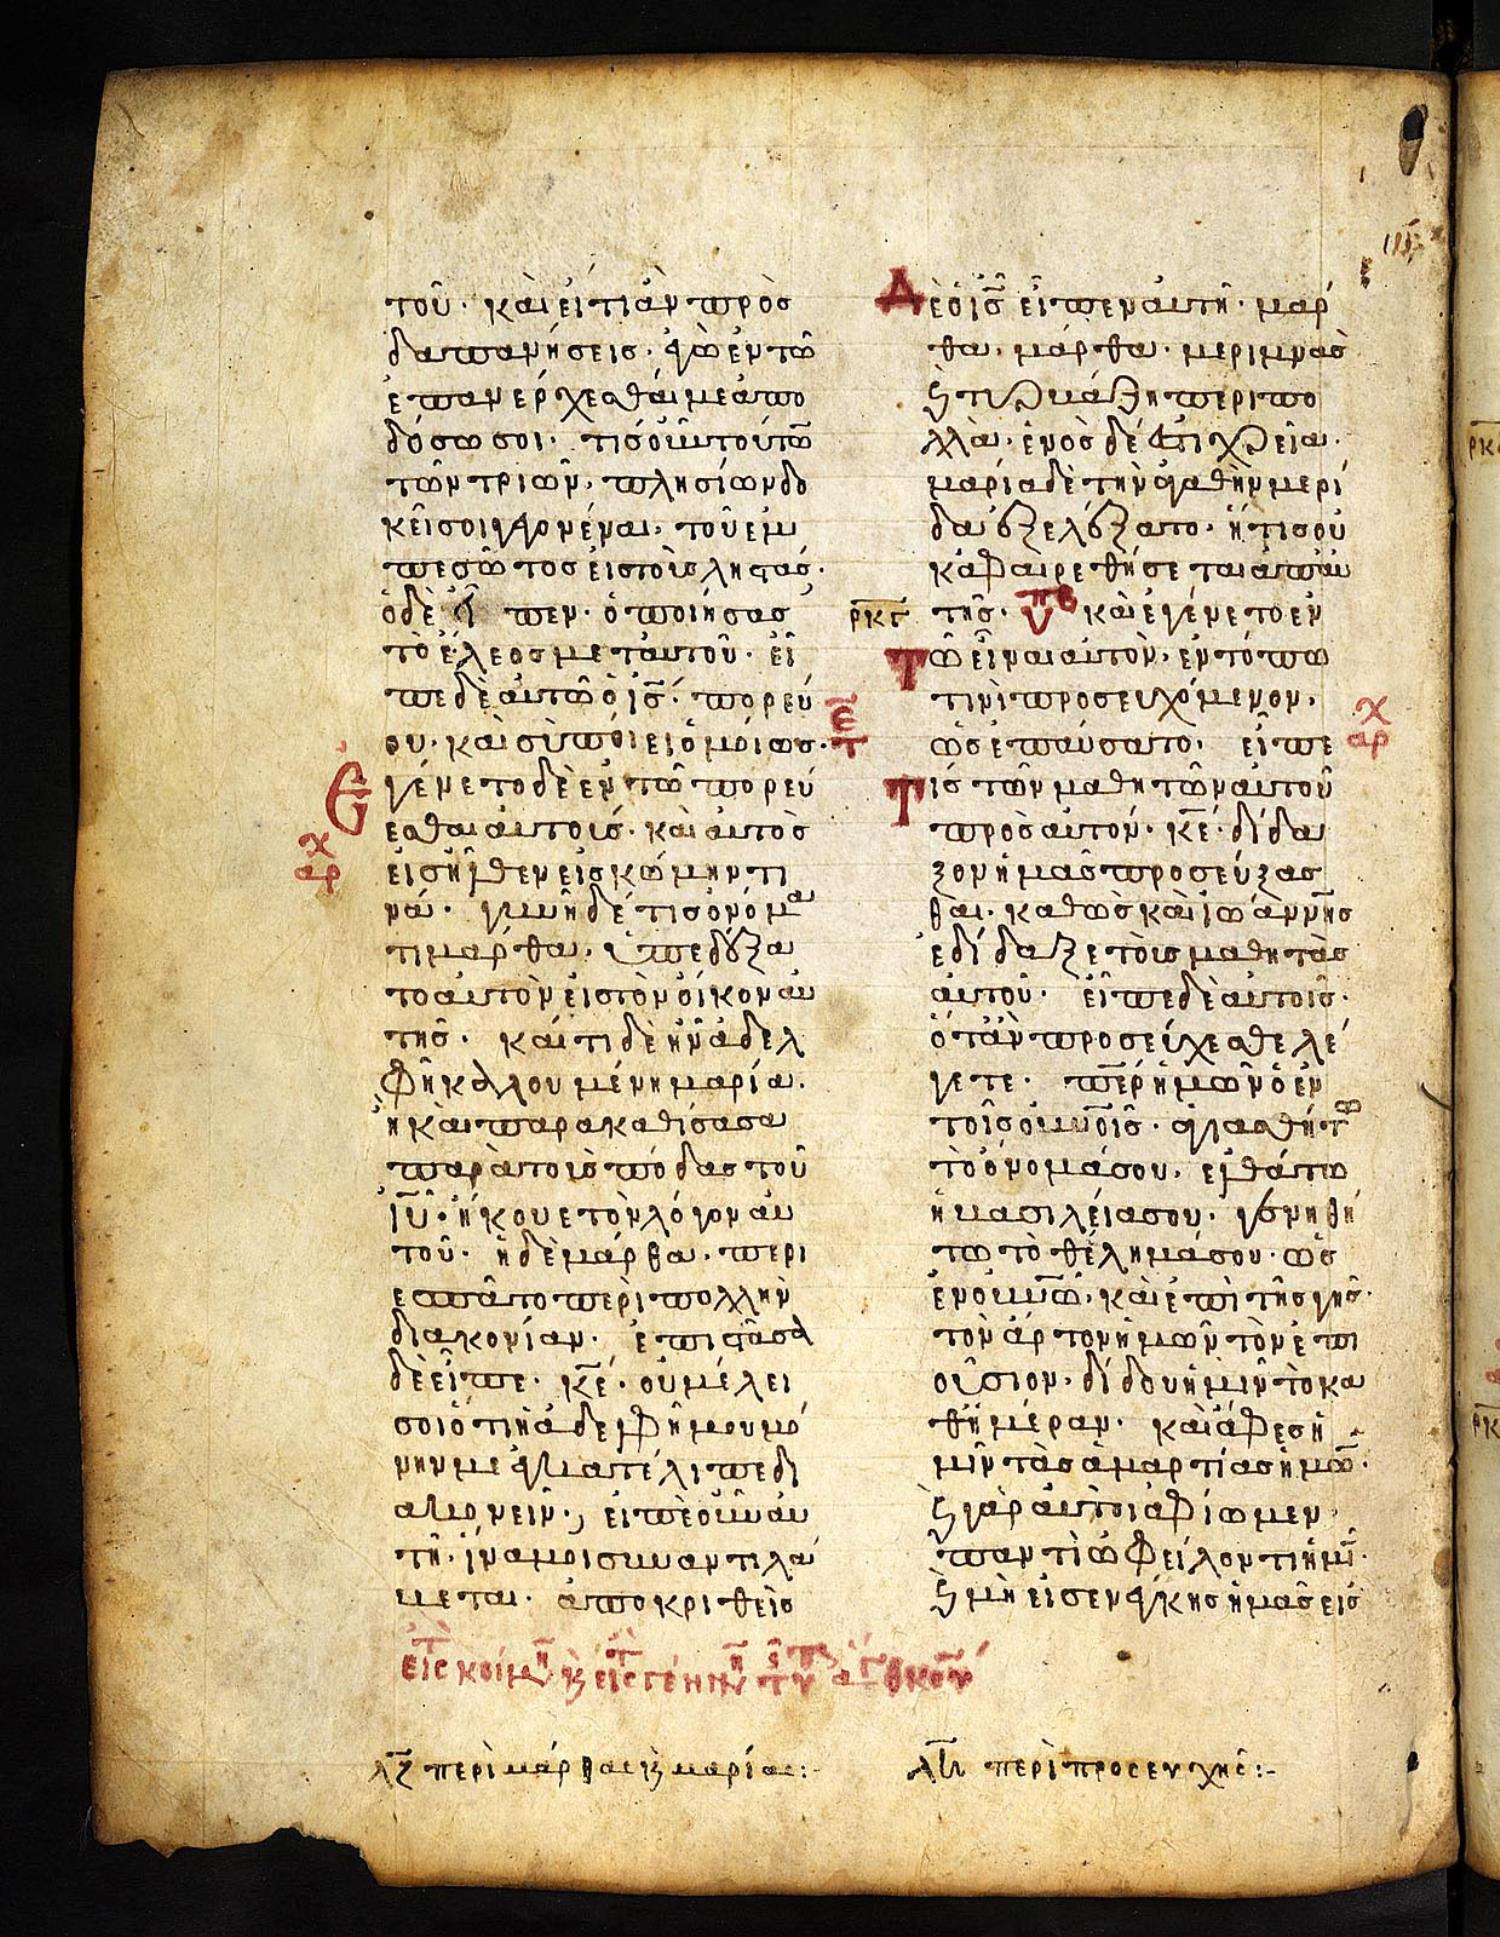 τοῦ· καὶ εἴ τι ἂν προσ
δαπανήσεις· ἐγὼ ἐν τῶ
ἐπανέρχεσθαί με ἀπο
δόσω σοι· τίς οὖν τούτῶ
τῶν τριῶν, πλησίων δο
κεῖ σοι γεγονέναι, τοῦ ἐμ
πεσῶντος εἰς τοὺς ληστάς·
ὁ δὲ εἶπεν· ὁ ποιήσας
τὸ ἔλεος μετ αὐτοῦ· εἶ
πε δὲ αὐτῶ ὁ ις̅· πορεύ
ου· καὶ σὺ ποίει ὁμοίως·
Εγένετο δὲ ἐν τῶ πορεύ
εσθαι αὐτούς· καὶ αὐτὸς
εἰσῆλθεν εἰς κώμην τι
νά· γυνὴ δέ τις ὀνόμα
τι μάρθα, ὑπεδέξα
το αὐτὸν εἰς τὸν οἶκον αὐ
τῆς· καί τιδε ἦν ἀδελ
φὴ καλουμένη μαρία·
ἣ καὶ παρακαθίσασα
παρὰ τοὺς πόδας τοῦ
ιυ̅· ἤκουε τὸν λόγον αὐ
τοῦ· ἡ δὲ μάρθα, περι
εσπᾶτο περὶ πολλὴν
διακονίαν· ἐπιστᾶσα
δὲ εἶπε· κε̅· οὐ μέλει
σοι ὅτι ἡ ἀδελφή μου μό
νην με ἐγκατέλιπε δι
ακονεῖν·, εἰπὲ οὖν αὐ
τῆ· ἵνα μοι συναντιλά
βεται· ἀποκριθεὶς
Δὲ ὁ ις̅ εἶπεν αὐτῆ· μάρ
θα, μάρθα· μεριμνᾶς
ϗ τυρβάζη περὶ πο
λλὰ· ἑνὸς δέ ἐστι χρεία·
μαρία δὲ τὴν ἀγαθὴν μερί
δα ἐξελέξατο· ἥτις οὐ
κ ἀφαιρεθήσεται ἀπ αὐ
ρκγ τῆς· καὶ ἐγένετο ἐν
Τῶ εἶναι αὐτὸν, ἐν τόπω
τινὶ προσευχόμενον,
ὡς ἐπαύσατο, εἶπέ
Τις τῶν μαθητῶν αὐτοῦ
πρὸς αὐτόν· κε̅· δίδα
ξον ἡμᾶς προσεύξασ
θαι· καθὼς καὶ ἰωάννης
ἐδίδαξε τοὺς μαθητὰς
αὐτοῦ· εἶπε δὲ αὐτοῖς·
ὅταν προσεύχεσθε λέ
γετε· περ̅ ἡμῶν ὁ ἐν
τοῖς οὐνοῖς· ἁγιασθήτω
τὸ ὄνομά σου, ἐλθάτω
ἡ βασιλεία σου· γενηθή
τω τὸ θέλημά σου· ὡς
ἐν οὐνῶ, καὶ ἐπὶ τῆς γῆς·
τὸν ἄρτον ἡμῶν τὸν ἐπι
οῦσιον, δίδου ἡμῖν τὸ κα
θημέραν· καὶ ἄφες ἡ
μῖν τὰς ἁμαρτίας ἡμῶ·
ϗ γὰρ αὐτοὶ ἀφίωμεν,
παντὶ ὠφείλοντι ἡμῖ·
ϗ μὴ εἰσενέγκης ἡμᾶς εἰς
λζ περὶ μάρθας ϗ μαρίας:-
λη περὶ προσευχῆς:-